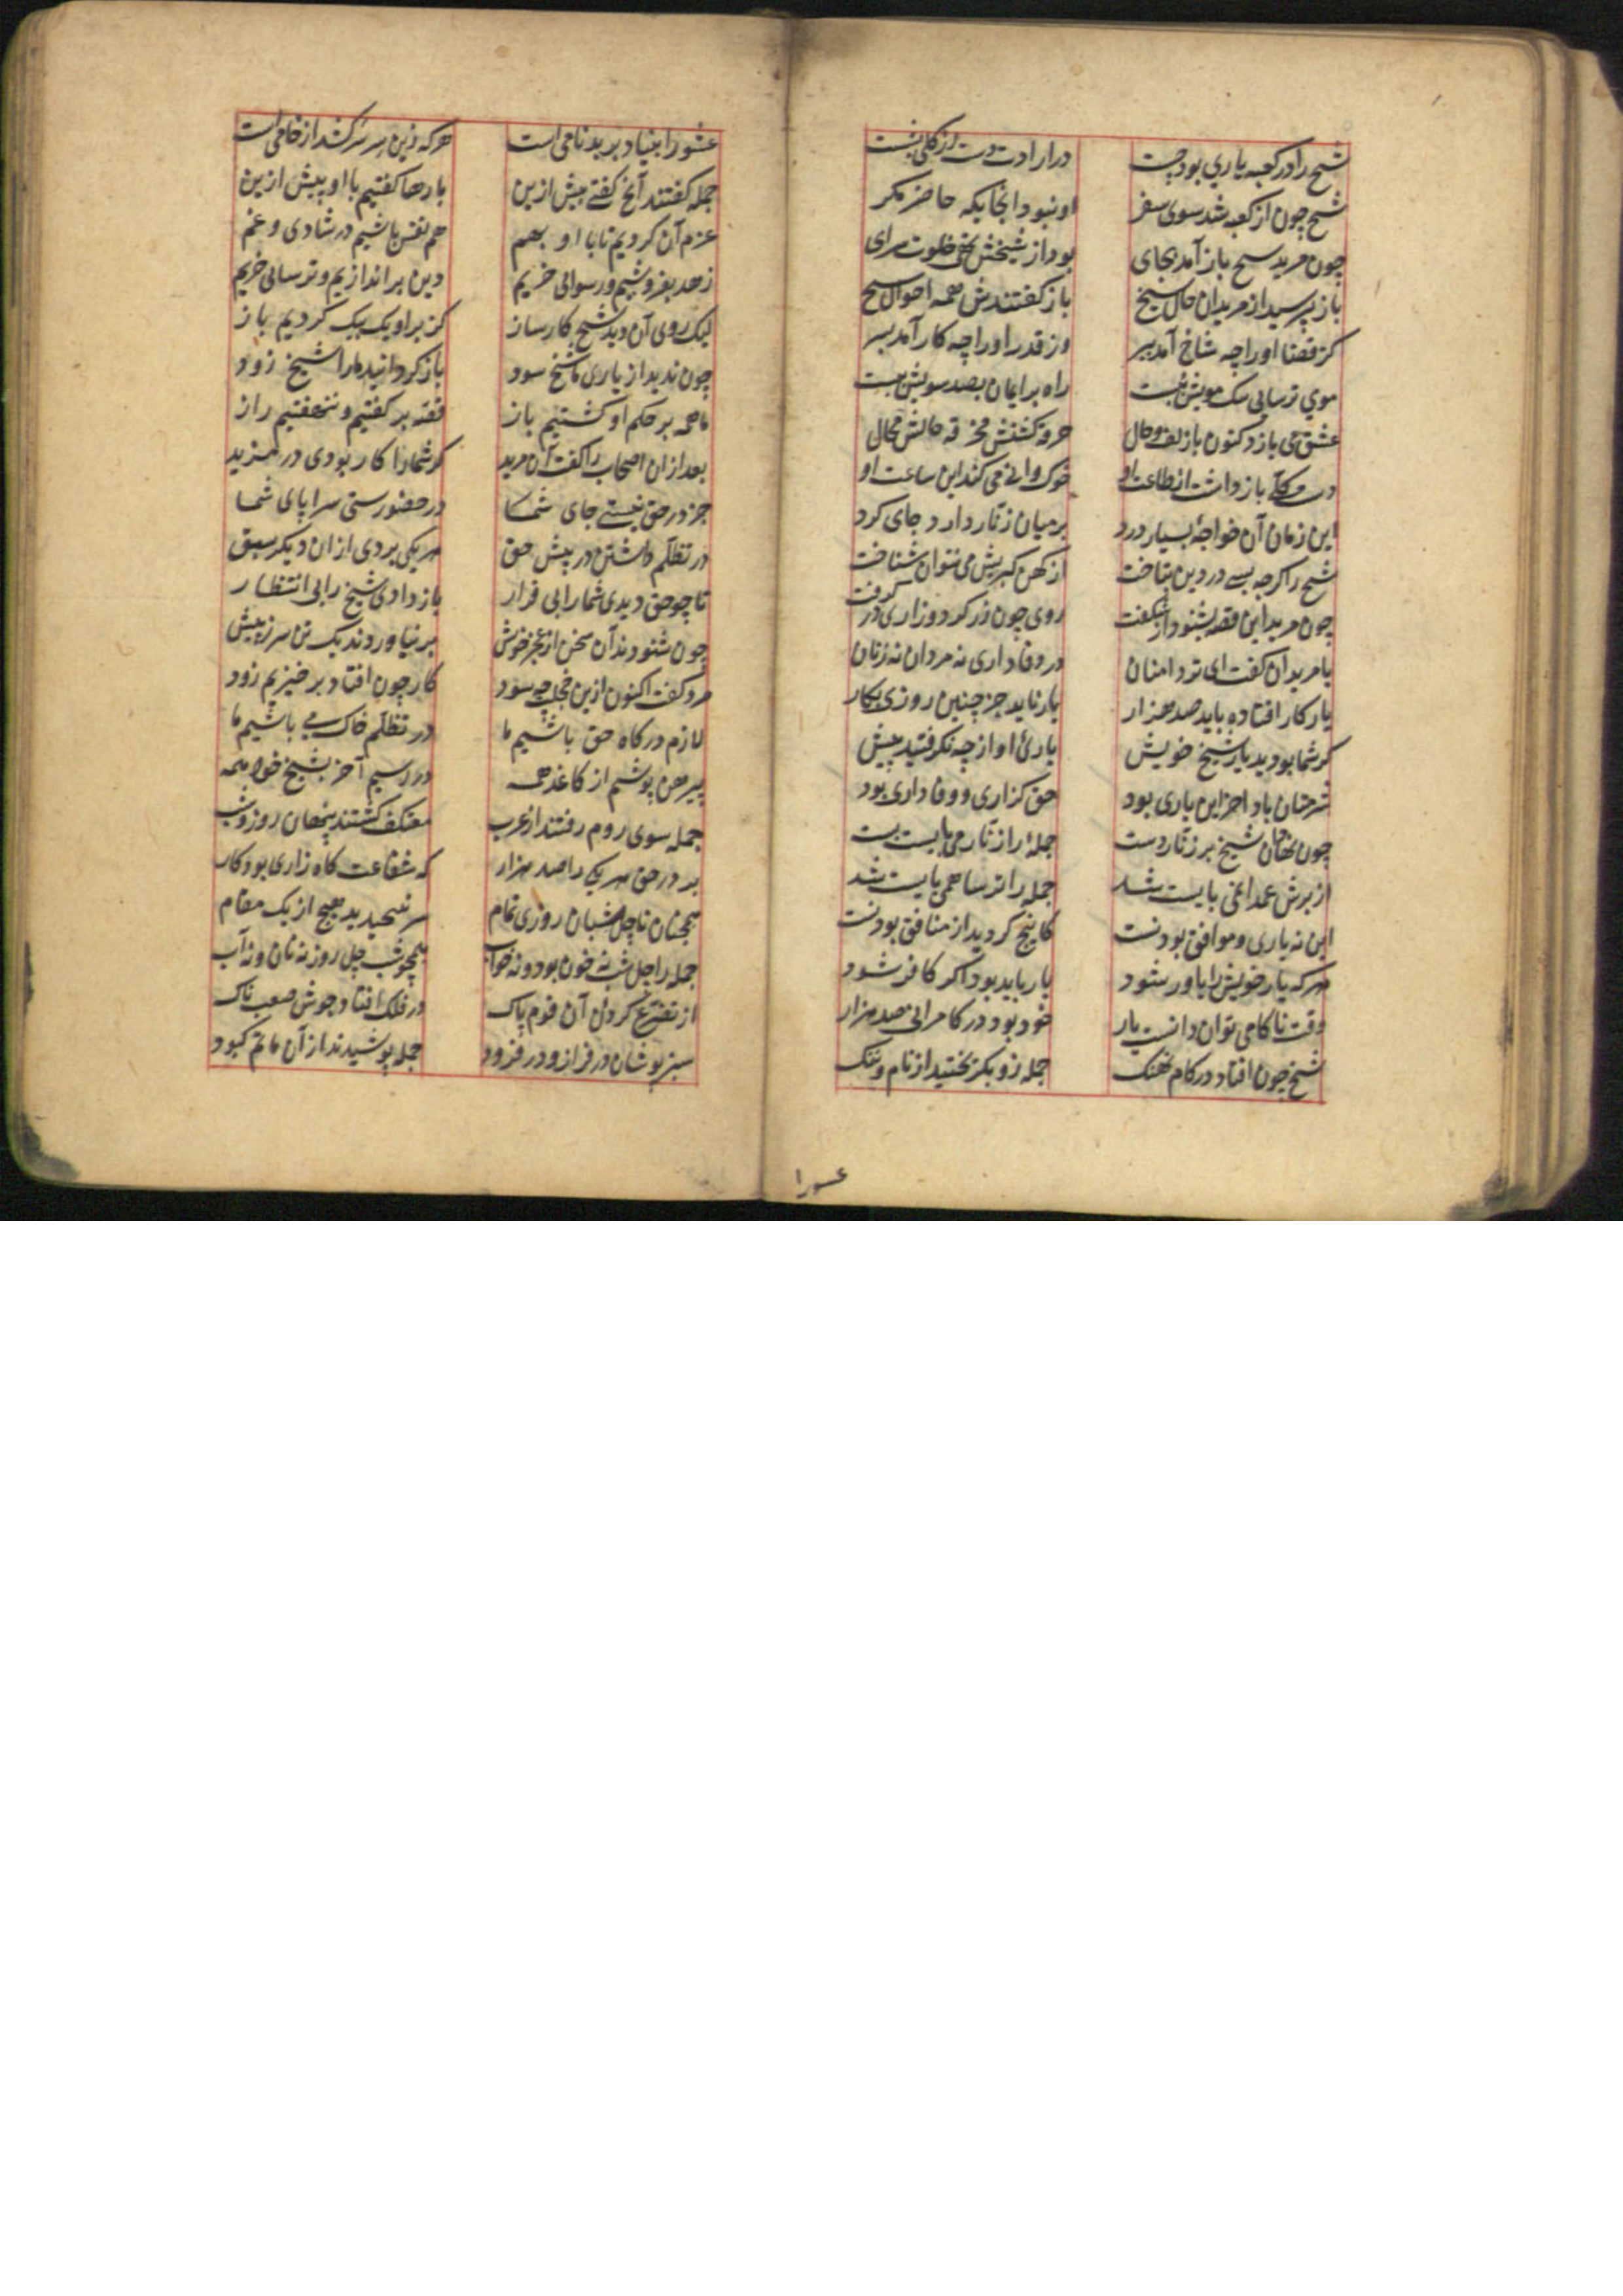 شیخ را در کعبه یاری بود چست در ارادت دست از کلی بشست
شیخ چون از کعبه شد سوی سفر او نبود آنجایکه حاضر مکر
چون مرید شیخ باز آمد بجای بود از شیخش تهی خلوت سرای
باز پرسید از مریدان حال شیخ باز کفتندش همه احوال شیخ
کز قضا او را چه شاخ آمد ببر وز قدر او را چه کار آمد بسر
موی ترسایی بیک مویش ببست راه بر ایمان بصد سویش ببست
عشق می بازد کنون با زلف و خال خرقه کشتش مخرقه حالش محال
دست کلی باز داشت از طاعت او خوک وانی می کند این ساعت او
این زمان آن خواجه بسیار درد بر میان زنار دارد جای کرد
شیخ را کرچه بسی در دین بتاخت از کهن کبریش می نتوان شناخت
چون مرید این قصه بشنود از شکفت روی چون زر کرد و زاری در کرفت
با مریدان کفت ای تر دامنان در وفاداری نه مردان نه زنان
یار کار افتاده باید صد هزار یار ناید جز چنین روزی بکار
کر شما بودید یار شیخ خویش یاریٔ او از چه نکرفتید پیش
شرمتان باد آخر این یاری بود حق کزاری و وفاداری بود
چون نهاد آن شیخ بر زنار دست جمله را زنار می بایست بست
از برش عمدا نمی بایست شد جمله را ترسا همی بایست شد
این نه یاری و موافق بودنست کانچ کردید از منافق بودنست
هرکه یار خویش را یاور شود یار باید بود اکر کافر شود
وقت ناکامی توان دانست یار خود بود در کامرانی صد هزار
شیخ چون افتاد در کام نهنک جمله زو بکریختید از نام و ننک
عشورا
عشق را بنیاد بر بدنامی است هرکه زین سر سر کشد از خامی است
جمله کفتند آنچ کفتی بیش ازین بارها کفتیم با او پیش ازین
عزم آن کردیم تا با او بهم هم نفس باشیم در شادی و غم
زهد بفروشیم و رسوایی خریم دین بر اندازیم و ترسایی خریم
لیک روی آن دید شیخ کارساز کز بر او یک بیک کردیم باز
چون ندید از یاری ما شیخ سود باز کردانید ما را شیخ زود
ما همه بر حکم او کشتیم باز قصه بر کفتیم و ننهفتیم راز
بعد از ان اصحاب را کفت آن مرید کر شما را کار بودی در مزید
جز در حق نیستی جای شما در حضورستی سراپای شما
در تظلم داشتن در پیش حق هریکی بردی از ان دیکر سبق
تا چو حق دیدی شما را بی قرار باز دادی شیخ را بی انتظار
چون شنودند آن سخن از عجز خویش بر نیاوردند یک تن سر ز پیش
مرد کفت اکنون ازین خجلت چه سود کار چون افتاد بر خیزیم زود
لازم درکاه حق باشیم ما در تظلم خاک می باشیم ما
پیرهن پوشیم از کاغذ همه در رسیم آخر بشیخ خود همه
جمله سوی روم رفتند از عرب معتکف کشتند پنهان روز و شب
بر در حق هر یکی را صد هزار که شفاعت کاه زاری بود کار
همچنان تا چل شبان روزی تمام سر نپیچیدید هیچ از یک مقام
جمله را چل شب نه خون بود و نه خواب همچو شب چل روز نه نان و نه آب
از تضرع کردن آن قوم پاک در فلک افتاد جوش صعب ناک
سبز پوشان در فراز و در فرود جمله پوشیدند از آن ماتم کبود